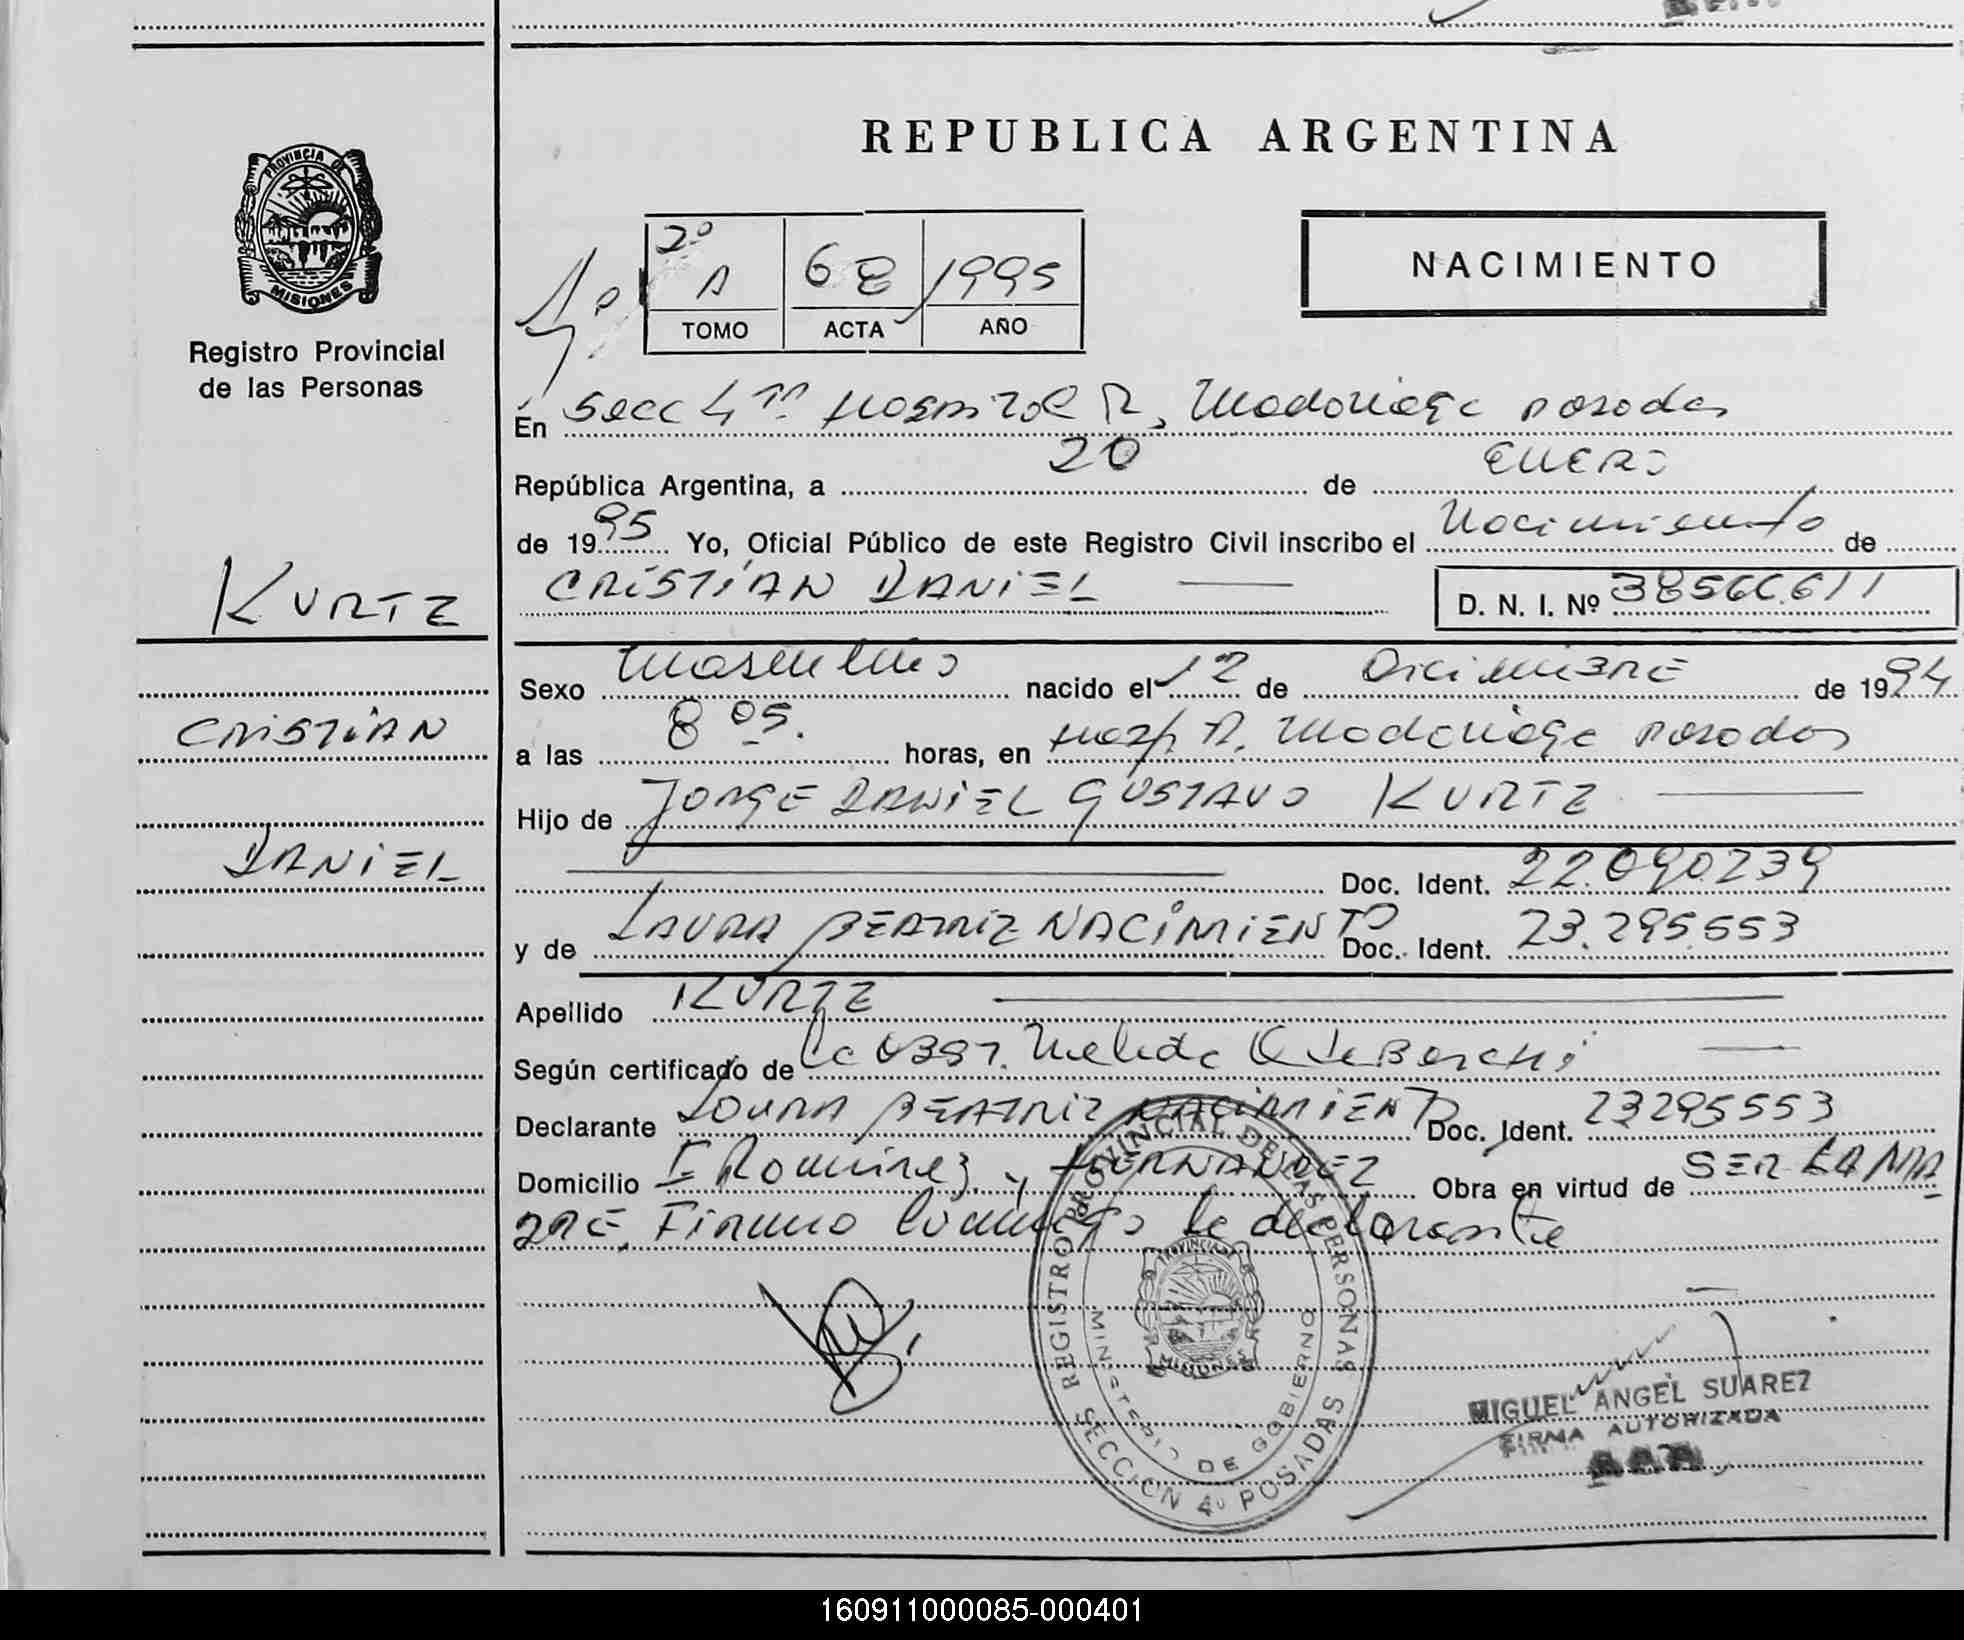 REPUBLICA ARGENTINA
PROVINCIA DE
MISIONES
Registro Provincial
de las Personas
2º
A 68 1995
TOMO ACTA AÑO
NACIMIENTO
En Secc 4ª Hospital R. Madariaga Posadas
República Argentina, a 20 de Enero
de 1995 Yo, Oficial Público de este Registro Civil inscribo el Nacimiento de
CRISTIAN DANIEL D. N. I. Nº 38566.611
KURTZ
CRISTIAN
DANIEL
Sexo Masculino nacido el 12 de Diciembre de 1994
a las 8 05. horas, en Hosp. R. Madariaga Posadas
Hijo de JORGE DANIEL GUSTAVO KURTZ
Doc. Ident. 22.090.239
y de LAURA BEATRIZ NACIMIENTO Doc. Ident. 23.295.553
Apellido KURTZ
Según certificado de la Obst. Melida
Declarante LAURA BEATRIZ NACIMIENTO Doc. Ident. 23295553
Domicilio Ramirez y HERNANDEZ Obra en virtud de SER LA MA
DRE. Firma conmigo la declarante
REGISTRO PROVINCIAL DE LAS PERSONAS
MINISTERIO DE GOBIERNO
PROVINCIA DE
MISIONES
SECCION 4º POSADAS
MIGUEL ANGEL SUAREZ
FIRMA AUTORIZADA
160911000085-000401